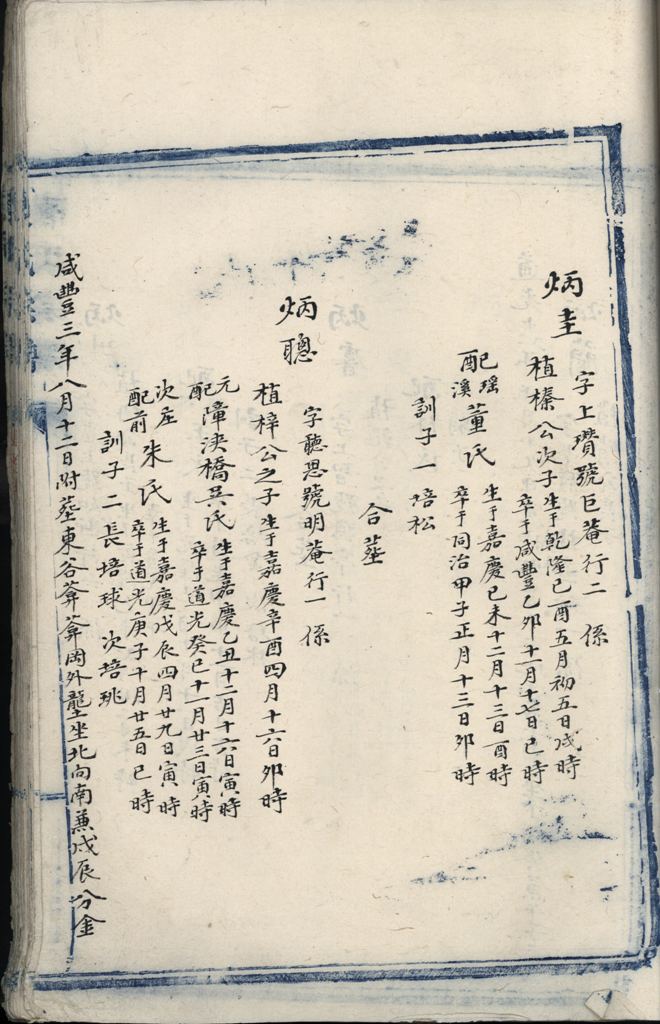 炳圭
字上瓚號巨菴行二 係
植榛公次子生于乾隆己酉五月初五日戌時
卒于咸豐乙卯十一月十七日巳時
配瑤溪董氏生于嘉慶己未十二月十三日酉時
卒于同治甲子正月十三日卯時
訓子一 培松
合塟
炳聰
字聽思號明菴行一 係
植梓公之子生于嘉慶辛酉四月十六日卯時
元配障浃橋吳氏生于嘉慶乙丑十二月十六日寅時
卒于道光癸巳十一月廿三日寅時
次配前庄朱氏生于嘉慶戊辰四月廿九日寅時
卒于道光庚子十月廿五日巳時
訓子二 長培球 次培珧
咸豐三年八月十二日附塟東谷葊葊岡外壟坐北向南兼戌辰分金